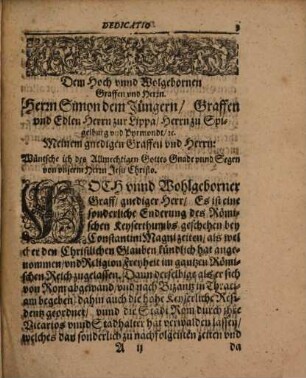 DEDICATIO
Dem Hoch vnnd Wolgebornen
Graffen vnd Herrn.
Herrn Simon dem Jüngern/ Graffen
vnd Edlen Herrn zur Lippa/ Herrn zu Spi-
gelburg vnd Pyrmondt/ ꝛc.
Meinem gnedigen Graffen vnd Herrn:
Wüntsche ich den Allmechtigen Gottes Gnade vnnd Segen
von vnserm Herrn Jesu Christo.
HOCH vnnd Wohlgeborner
Graff/ gnediger Herr/ Es ist eine
sonderliche Enderung des Römi-
schen Keyserthumbs geschehen bey
Constantini Magni zeiten/ als wel-
cher den Christlichen Glauben fündlich hat ange-
nommen vnd Religion freyheit im gantzen Römi-
schen Reich zugelassen. Dann derselbige als er sich
von Rom abgewand/ vnd nach Bizantz in Thraci-
am begeben/ dahin auch die hohe Keyserliche Resi-
dentz geordnet/ vnnd die Stadt Rom durch ihre
Vicarios vnnd Stadhalter hat verwalden lassen/
welches dan sonderlich zu nachfolgenten zeiten vnd
A ij
da